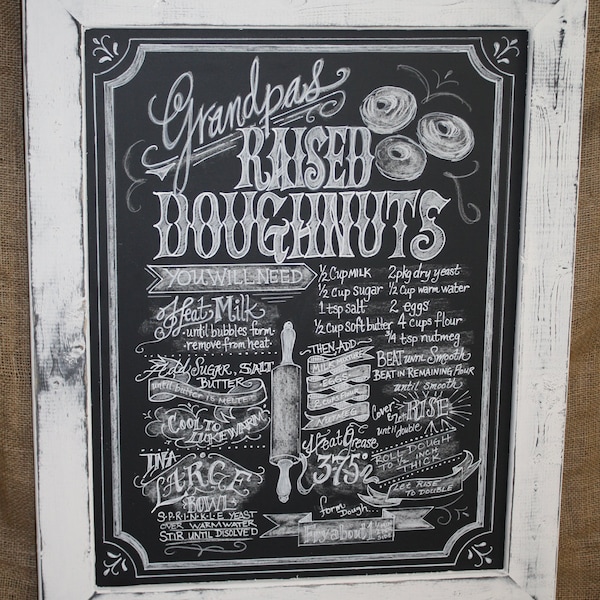 Grandpas
RAISED
DOUGHNUTS
YOU WILL NEED
½ Cup MILK
½ cup sugar
1 tsp salt
½ cup soft butter
2 pkg dry yeast
½ Cup warm water
2 eggs
4 cups flour
¾ tsp nutmeg
Heat Milk
·until bubbles form·
·remove from heat·
Add Sugar, SALT
BUTTER
until butter is melted
Cool to
LUKEWARM
IN A
LARGE
BOWL
S·P·R·I·N·K·L·E YEAST
OVER WARM WATER
STIR UNTIL DISSOLVED
THEN ADD
MILK MIXTURE
EGGS
2 CUPS FLOUR
NUTMEG
BEAT until Smooth
BEAT IN REMAINING FLOUR
until smooth
Cover
& let RISE
until double
ROLL DOUGH
TO ½ INCH
THICK
LET RISE
TO DOUBLE
Heat Grease
375°
form
Dough...
Fry about 1 min
side